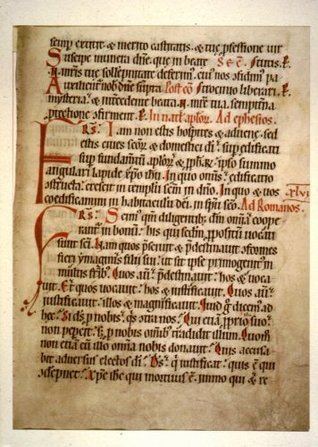 semp extitit. & merito castitatis. & tue pfessione uir
Suscipe munera dne. que in beate
nris tue sollepnitate deferim. cui nos sfidim pa
trocinio liberari.
mysteria. & intcedente beata. n. mre tua sempitna
ptectione sfirment. In natł aploꝝ. Ad ephesios.
Iam non estis hospites & aduene. sed
estis ciues scoꝝ. & domestici di. sup edificati
sup fundamtū aploꝝ & pphꝝ. ipso summo
angulari lapide xpo ihu. In quo omis edificatio
ostructa. crescit in templū scm in dno. In quo & uos
coedificamini in habitaculū dei. in spū sco. Ad Romanos.
xlvi
Scim qm diligentib; dm omia coope
rant in bonū. his qui scdm ppositū uocati
sunt sci. Nam quos psciuit & pdestinauit sformes
fieri ymaginis filii sui. ut sit ipse primogenit in
multis frib;. Quos aū pdestinauit. hos & uoca
uit. Et quos uocauit. hos & iustificauit. Quos aū
iustificauit. illos & magnificauit. Quid g dicem ad
hec. Si ds p nobis. qs stra nos. Qui etiā pprio suo
non pepcit. s; p nobis omib; tradidit illum. Quom
non etiā cū illo omia nobis donauit. Quis accusa
bit aduersus electos di. Ds q iustificat. quis e qui
sdepnet. Xpc ihc qui mortuus e. immo qui & re